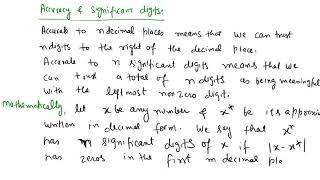 Accuracy & Significant digits:
Accurate to n decimal places means that we can trust
n digits to the right of the decimal place.
Accurate to n significant digits means that we
can trust a total of n digits as being meaningful
with the leftmost nonzero digit.
Mathematically, let x be any number & x* be its approxi
written in decimal form. We say that x*
has m significant digits of x if |x-x*|
has zeros in the first m decimal pla